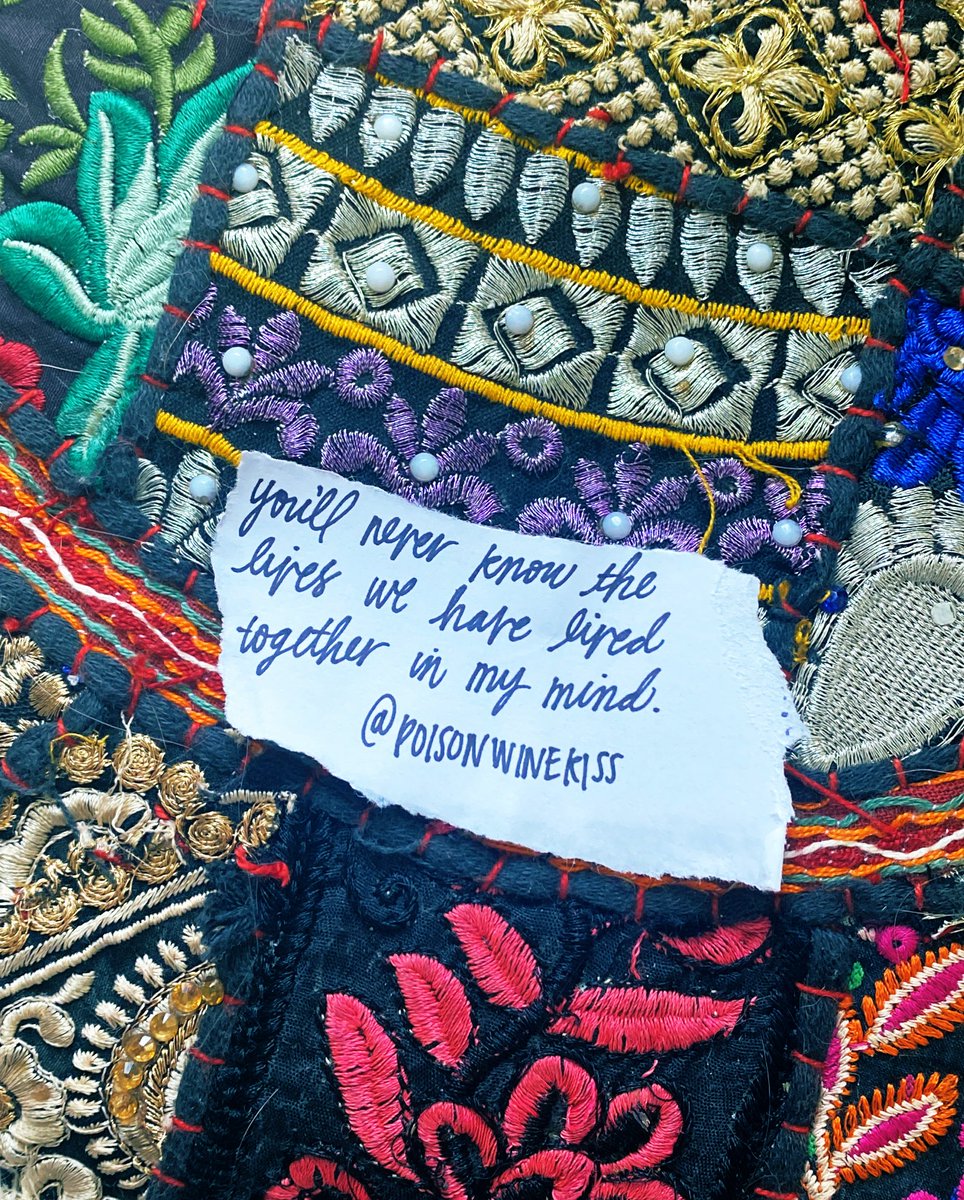 you'll never know the
lives we have lived
together in my mind.
@POISONWINEKISS